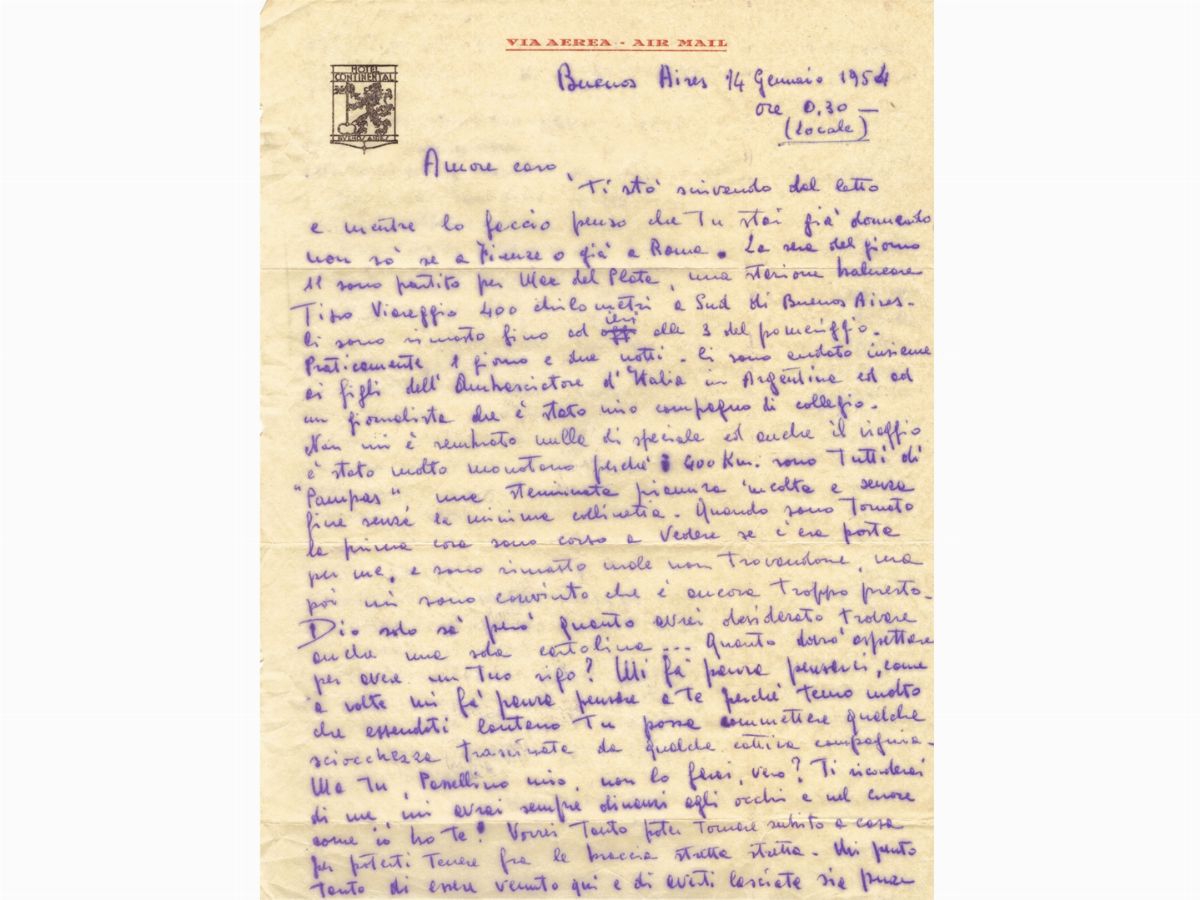 VIA AEREA - AIR MAIL
HOTEL
CONTINENTAL
BUENOS AIRES
Buenos Aires 14 Gennaio 1954
ore 0,30 —
(locale)
Amore caro,
Ti stò scrivendo dal letto
e mentre lo faccio penso che Tu stai già dormendo
non sò se a Firenze o già a Roma. La sera del giorno
11 sono partito per Mar del Plata, una stazione balneare
Tipo Viareggio 400 chilometri a Sud di Buenos Aires-
Ci sono rimasto fino ad oggi ieri alle 3 del pomeriggio.
Praticamente 1 giorno e due notti. Ci sono andato insieme
ai figli dell'Ambasciatore d'Italia in Argentina ed ad
un giornalista che è stato mio compagno di collegio.
Non mi è sembrato nulla di speciale ed anche il viaggio
è stato molto monotono perchè i 400 Km. sono Tutti di
"Pampas" una sterminata pianura incolta e senza
fine senza la minima collinetta. Quando sono Tornato
la prima cosa sono corso a Vedere se c'era posta
per me, e sono rimasto male non Trovandone, ma
poi mi sono convinto che è ancora Troppo presto.
Dio solo sà però quanto avrei desiderato trovare
anche una sola cartolina... Quanto dovrò aspettare
per avere un Tuo rigo? Mi fà paura pensarci, come
a volte mi fà paura pensare a te perchè temo molto
che essendoti lontano Tu possa commettere qualche
sciocchezza trascinata da qualche cattiva compagnia.
Ma Tu, Passellino mio, non lo farai, vero? Ti ricorderai
di me, mi avrai sempre dinanzi agli occhi e nel cuore
come io ho te! Vorrei Tanto poter Tornare subito a casa
per poterti Tenere fra le braccia stretta stretta. Mi pento
Tanto di essere venuto qui e di averti lasciata sia pure